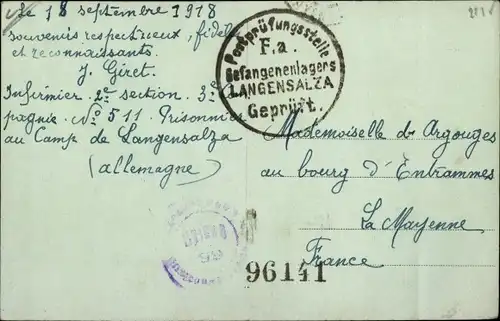 Le 18 septembre 1918
souvenirs respectueux, fidèles
et reconnaissants.
J. Giret.
Infirmier. 2e section. 3e
pagnie. No 511. Prisonnier
au Camp de Langensalza
(allemagne)
Postprüfungsstelle
F.a.
Gefangenenlagers
LANGENSALZA
Geprüft.
Mademoiselle d'Argouges
au bourg d'Entrammes
La Mayenne
France
96141